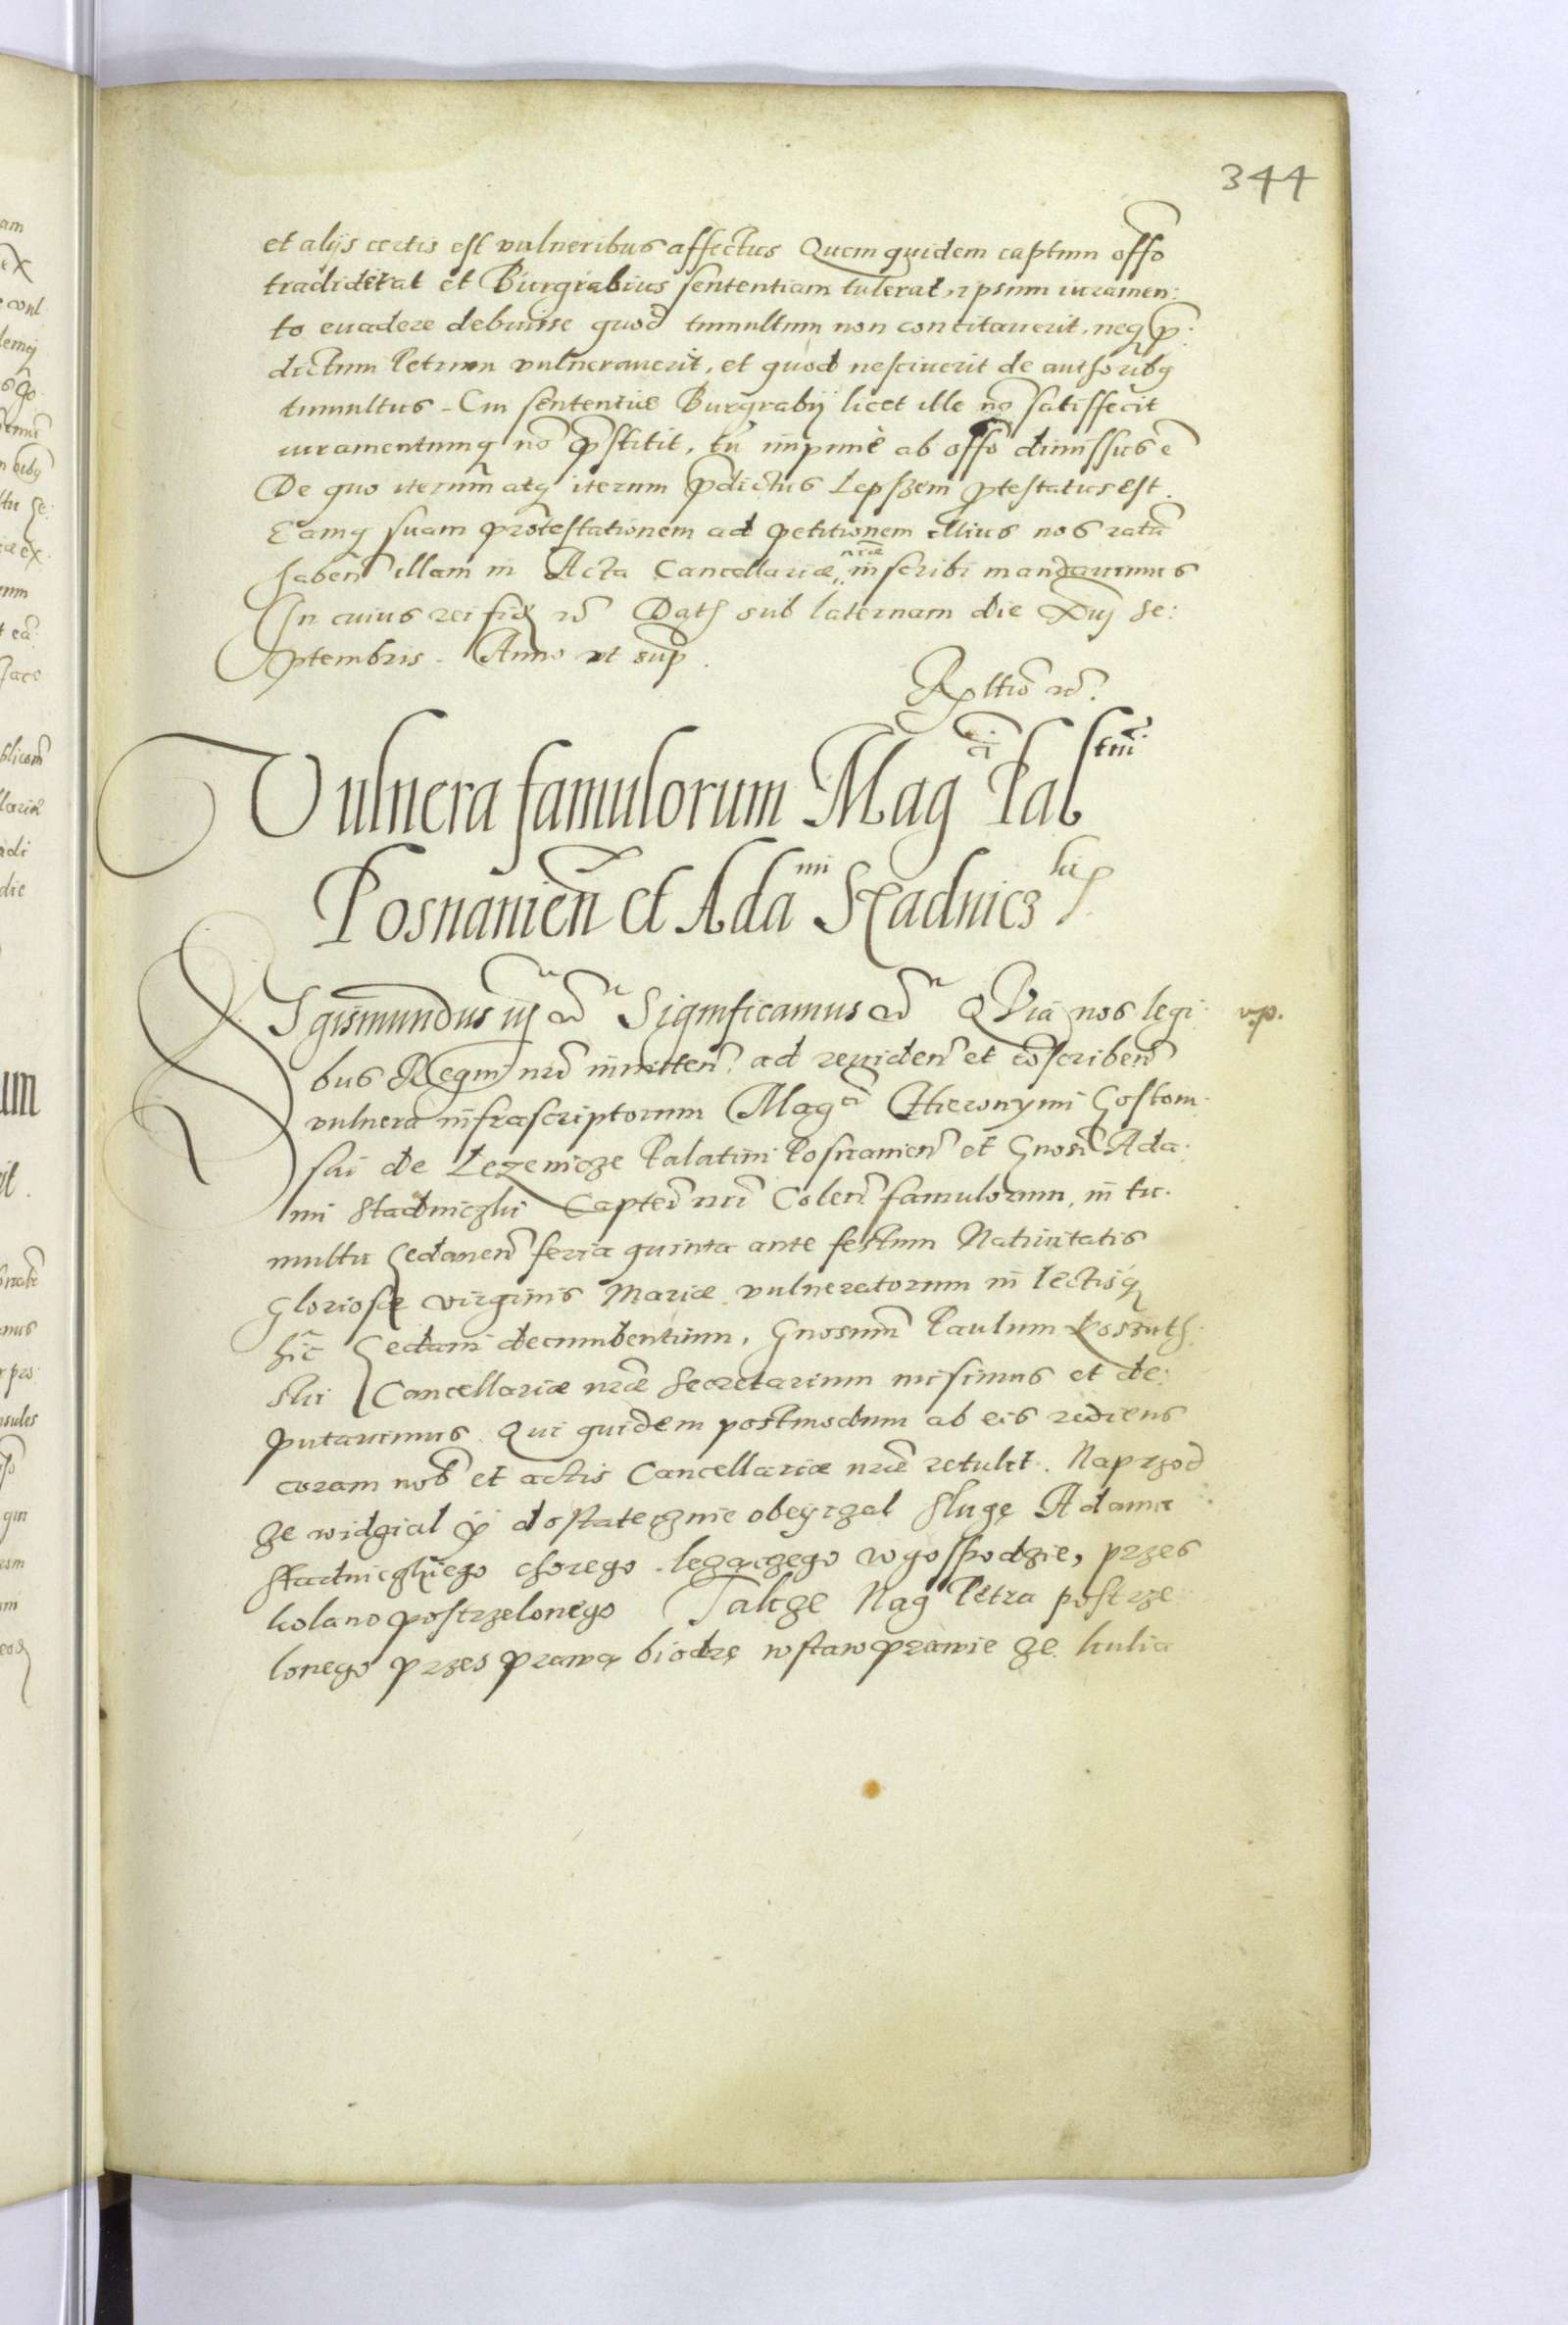 344
et alijs certis est vulneribus affectus Quem quidem captum offo
tradiderat et Burgrabius sententiam tulerat, ipsum iuramen:
to euadere debuisse quod tumultum non concitauerit, neq p:
dictum Petrum vulnerauerit, et quod nesciuerit de authoribq
tumultus. Cui sententiae Burgrabij licet ille no satisfecit
iuramentumq no pstitit, tn impunè ab offo dimissus e
De quo iterum atq iterum pdictus Lepszem ptestatus est.
Eamq suam protestationem ad petitionem illius nos ratu
haben illam in Acta Cancellariae nrae inscribi mandauimus
In cuius rei fid Dath sub laternam die Xvij Se:
ptembris. Anno ut sup.
Rltio
Vulnera famulorum Magci Pal tini
Posnanien et Adami Stadnicz ki
SIgismundus iij Significamus QVia nos legi
v.p.
bus Regni nri inniten: ad reuiden et coscriben
vulnera infrascriptorum Magci Hieronymi Gostom:
ski de Lezenicze Palatini Posnanien et Gnosi Ada:
mi Stadniczki Captei nri Colen famulorum, in tu:
multu Gedanen feria quinta ante festum Natiuitatis
Gloriosae virginis Mariae vulneratorum in lectisq
hic Gedani decumbentium, Gnosum Paulum Koszuth:
ski Cancellariae nrae Secretarium misimus et de:
putauimus. Qui quidem postmodum ab eis rediens
coram nob et actis Cancellariae nrae retulit. Naprzod
ze widzial y dostatecznie obeyrzal sługę Adama
Stadniczkiego chorego lezączego w gospodzie, przes
kolano postrzelonego Takze Nag Petra postrze
lonego przes prawą biodrę w staw prawie ze kulia